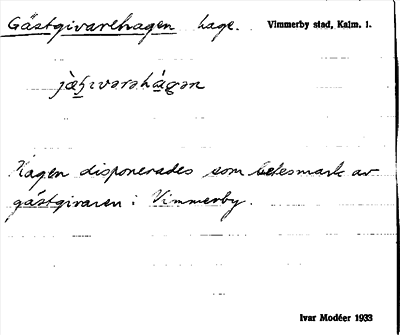 Gästgivarehagen hage. Vimmerby stad, Kalm. l.
Hagen disponerades som betesmark av
gästgivaren i Vimmerby.
Ivar Modéer 1933